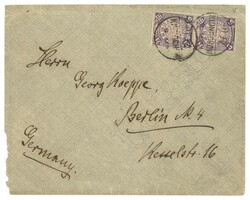 Herrn
Georg Koeppe
Berlin N. 4
Kesselstr. 16
Germany.